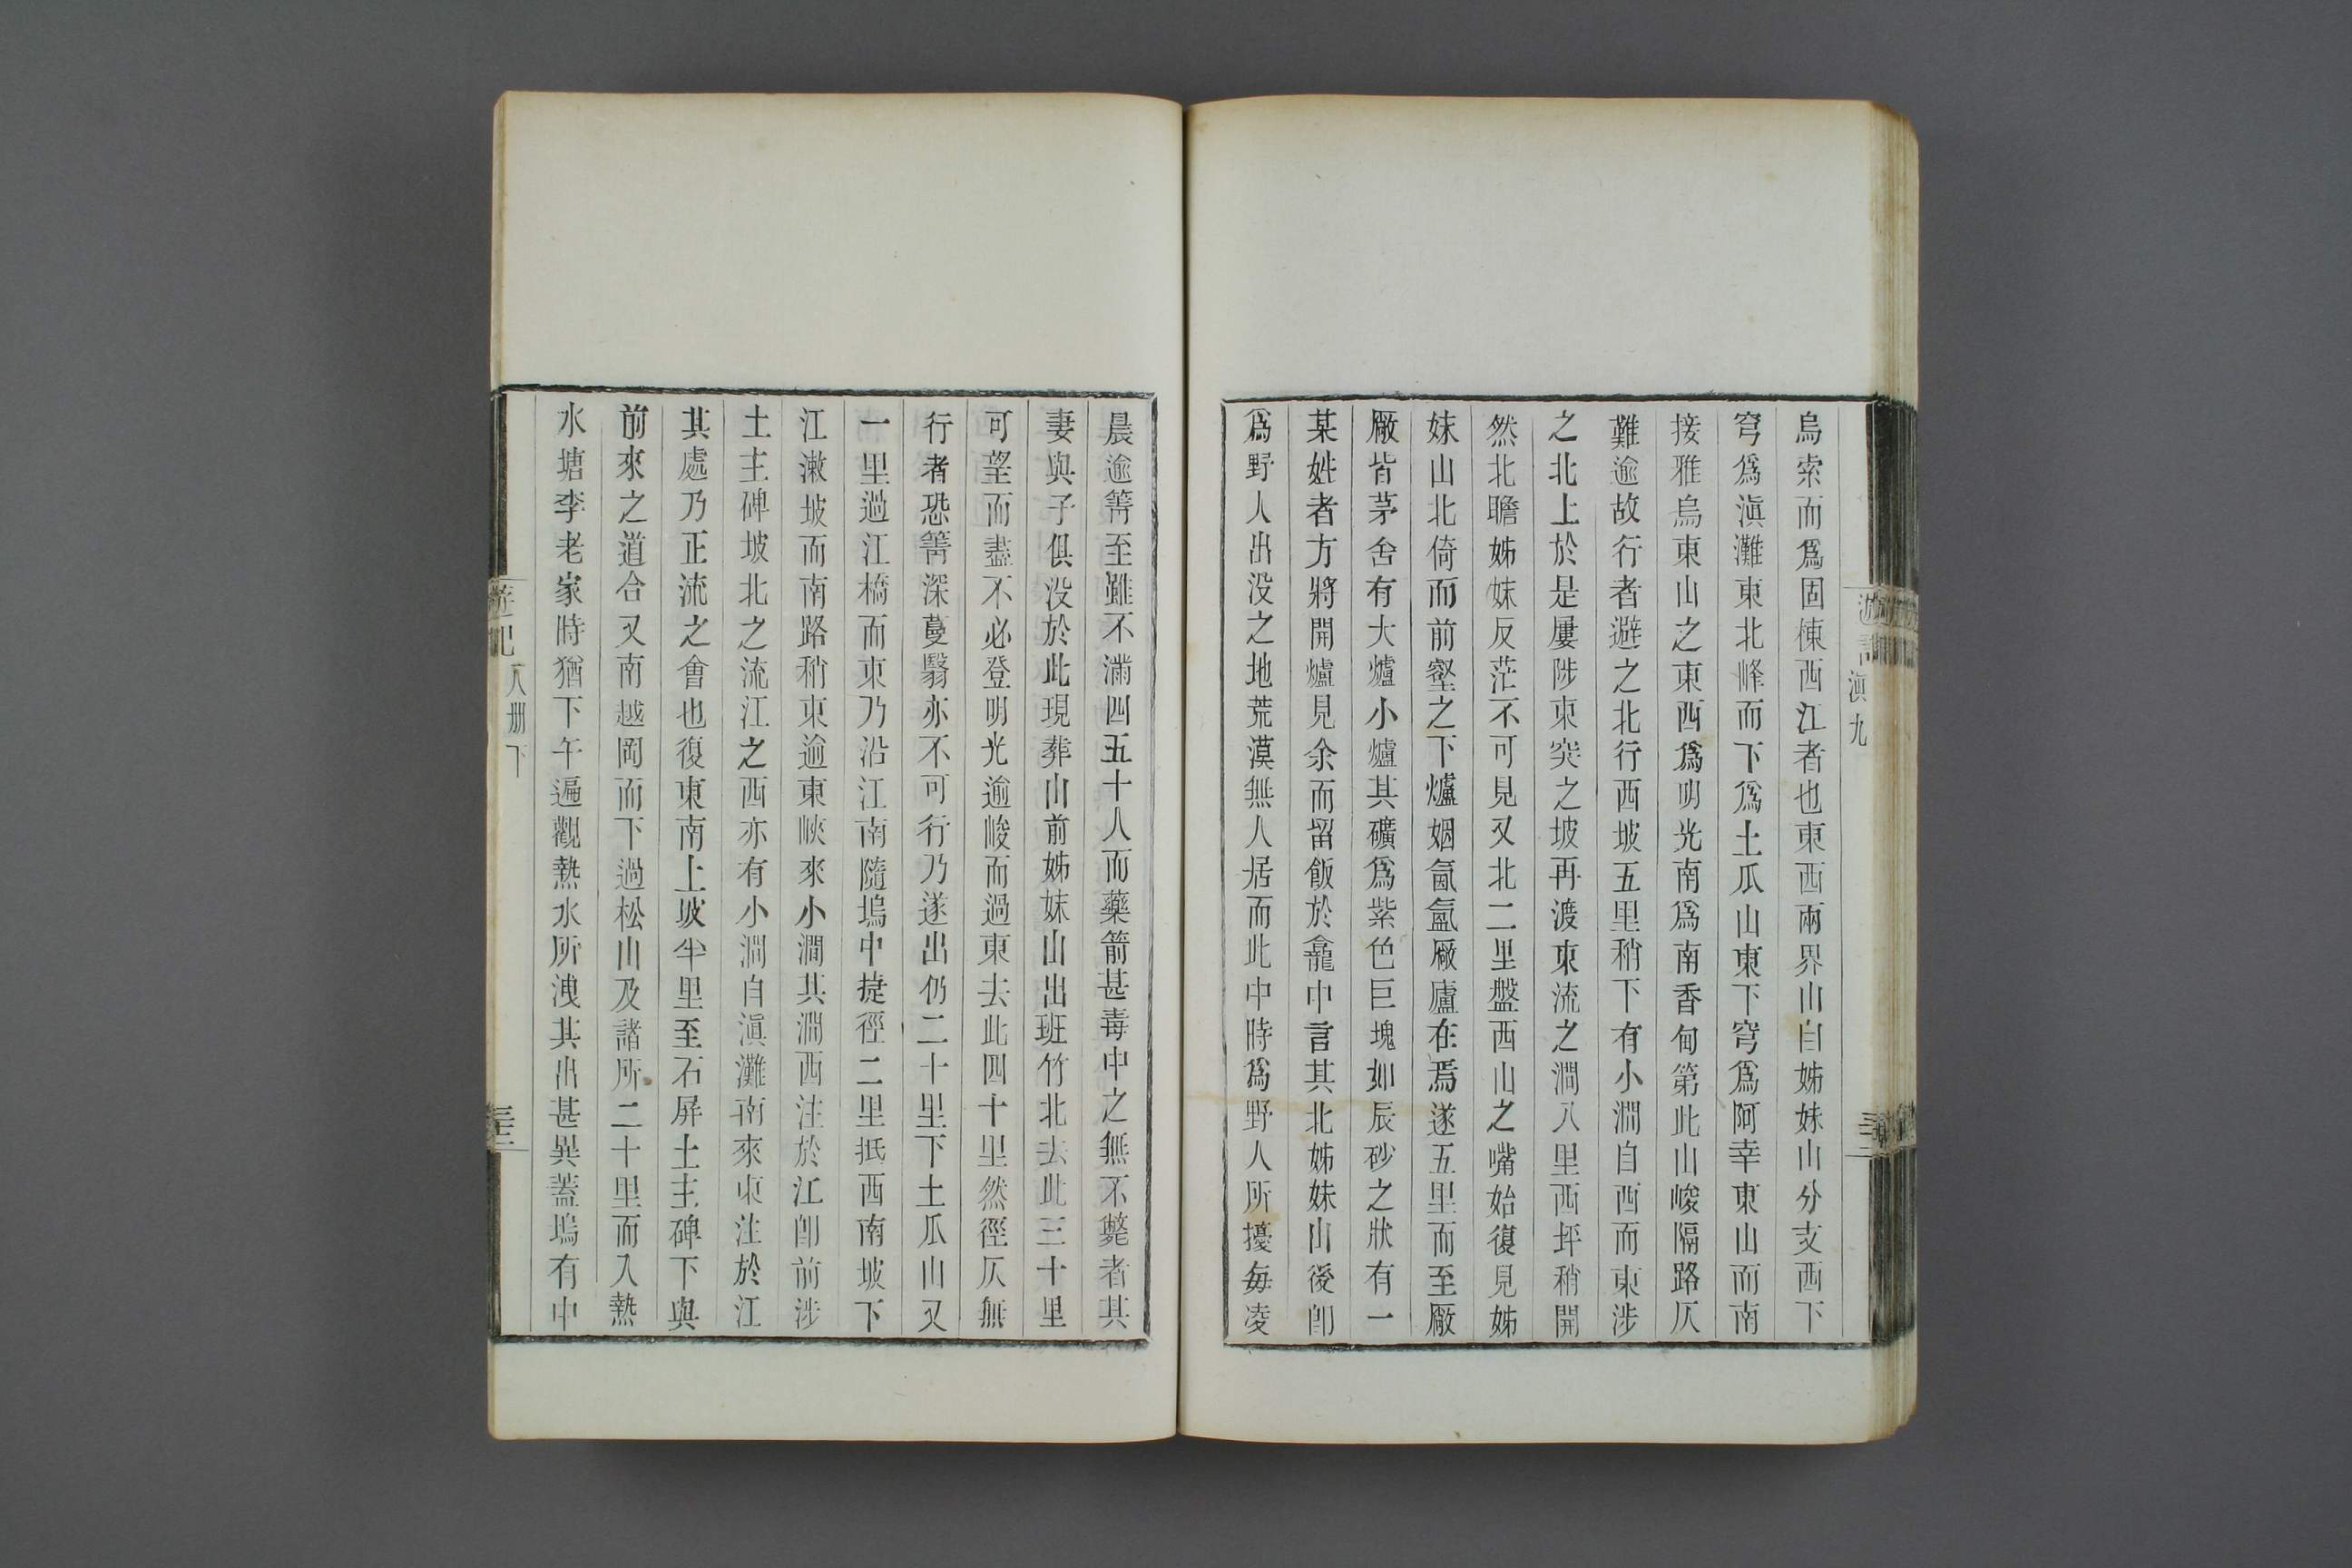 烏索而爲固棟西江者也東西兩界山自姊妹山分支西下
穹爲滇灘東北峰而下爲土瓜山東下穹爲阿幸東山而南
接雅烏東山之東西爲明光南爲南香甸第此山峻隔路仄
難逾故行者避之北行西坡五里稍下有小澗自西而東涉
之北上於是屢陟東突之坡再渡東流之澗八里西坪稍開
然北瞻姊妹反茫不可見又北二里盤西山之嘴始復見姊
妹山北倚而前壑之下爐烟氤氳厰廬在焉遂五里而至厰
厰皆茅舍有大爐小爐其礦爲紫色巨塊如辰砂之狀有一
某姓者方將開爐見余而留飯於龕中言其北姊妹山後卽
爲野人出没之地荒漠無人居而此中時爲野人所擾每凌
滇九
晨逾箐至雖不滿四五十人而藥箭甚毒中之無不斃者其
妻與子俱没於此現葬山前姊妹山出班竹北去此三十里
可望而盡不必登明光逾峻而過東去此四十里然徑仄無
行者恐箐深蔓翳亦不可行乃遂出仍二十里下土瓜山又
一里過江橋而東乃沿江南隨塢中捷徑二里抵西南坡下
江漱坡而南路稍東逾東峽來小澗其澗西注於江卽前涉
土主碑坡北之流江之西亦有小澗自滇灘南來東注於江
其處乃正流之會也復東南上坡半里至石屏土主碑下與
前來之道合又南越岡而下過松山及諸所二十里而入熱
水塘李老家時猶下午遍觀熱水所洩其出甚異蓋塢有中
遊記
八册下